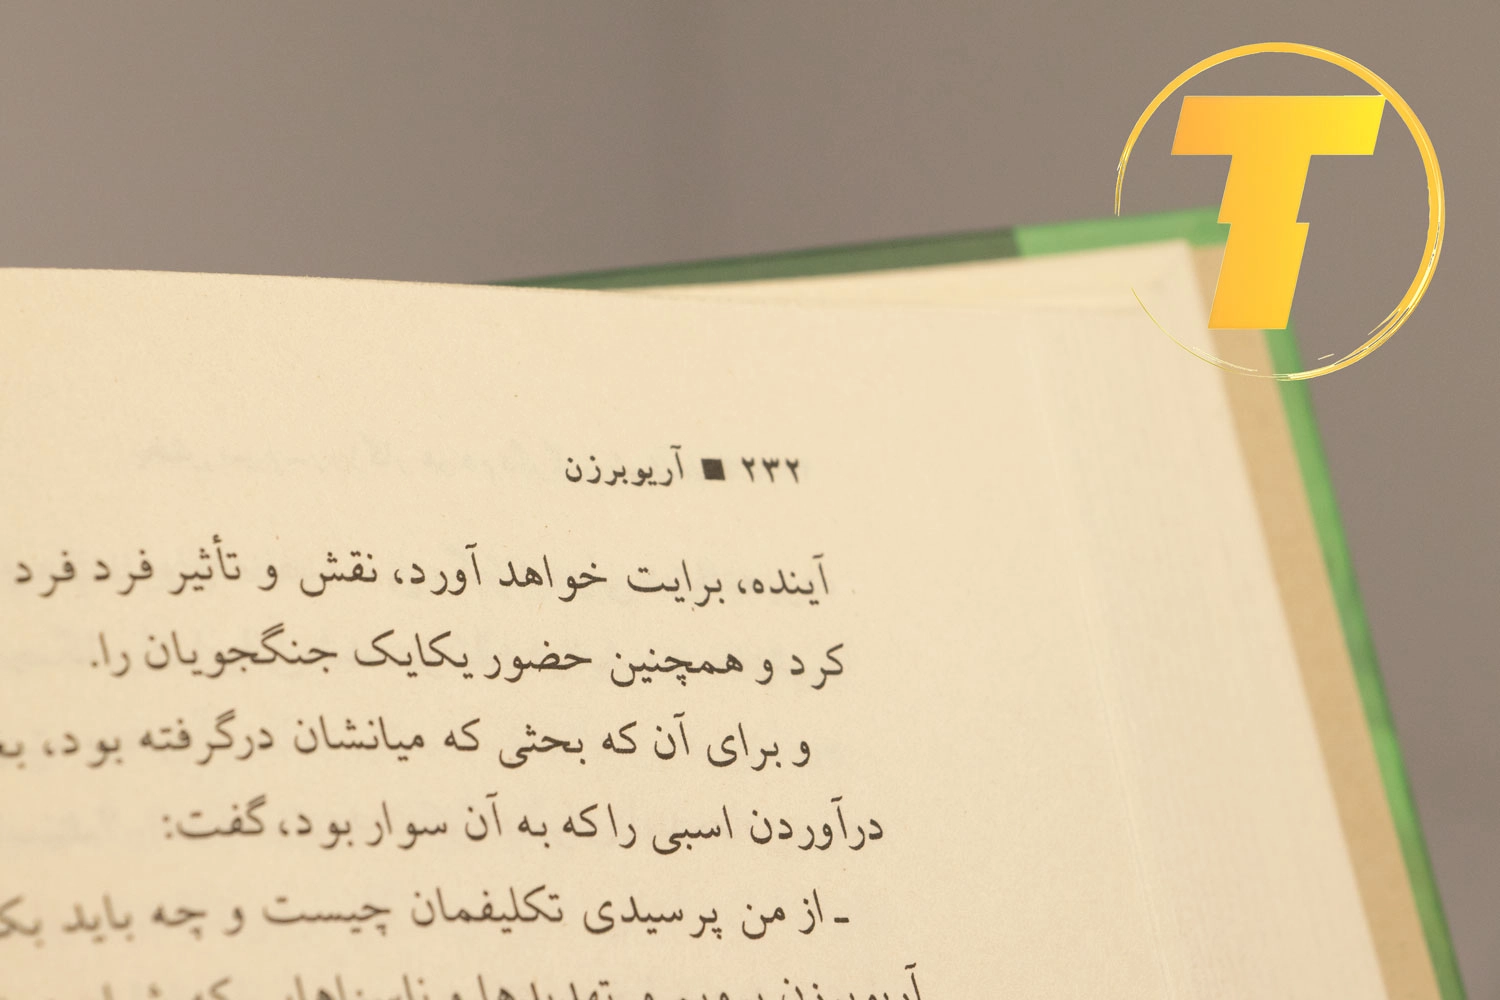 T
۲۳۲ ■ آریوبرزن
آینده، برایت خواهد آورد، نقش و تأثیر فرد فرد
کرد و همچنین حضور یکایک جنگجویان را.
و برای آن که بحثی که میانشان درگرفته بود،
درآوردن اسبی را که به آن سوار بود، گفت:
ـ از من پرسیدی تکلیفمان چیست و چه باید
آریوبرزن